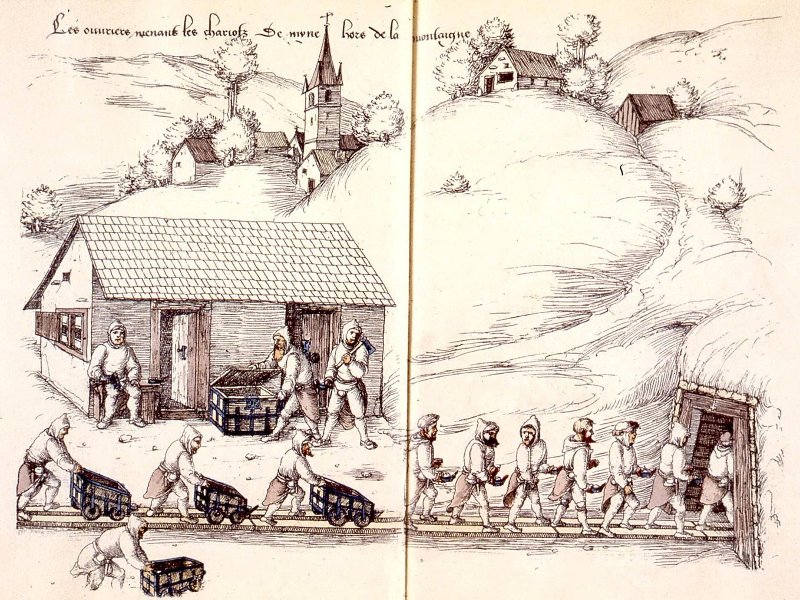 Les ouvriers menans les chariotz De myne hors de la montaigne